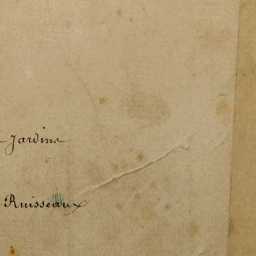 Jardins
Ruisseaux